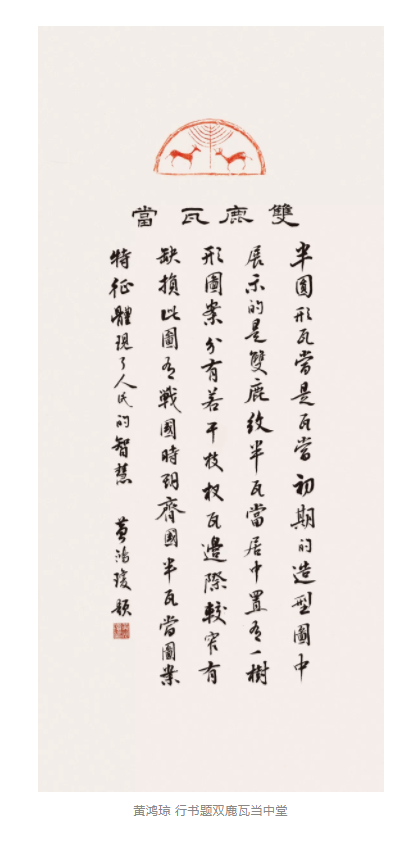 雙鹿瓦當
半圓形瓦當是瓦當初期的造型圖中
展示的是雙鹿紋半瓦當居中置有一樹
形圖案分有若干枝杈瓦邊際較窄有
缺損此圖為戰國時期齊國半瓦當圖案
特征體現了人民的智慧 黄鸿瓊題
黄鸿琼 行书题双鹿瓦当中堂